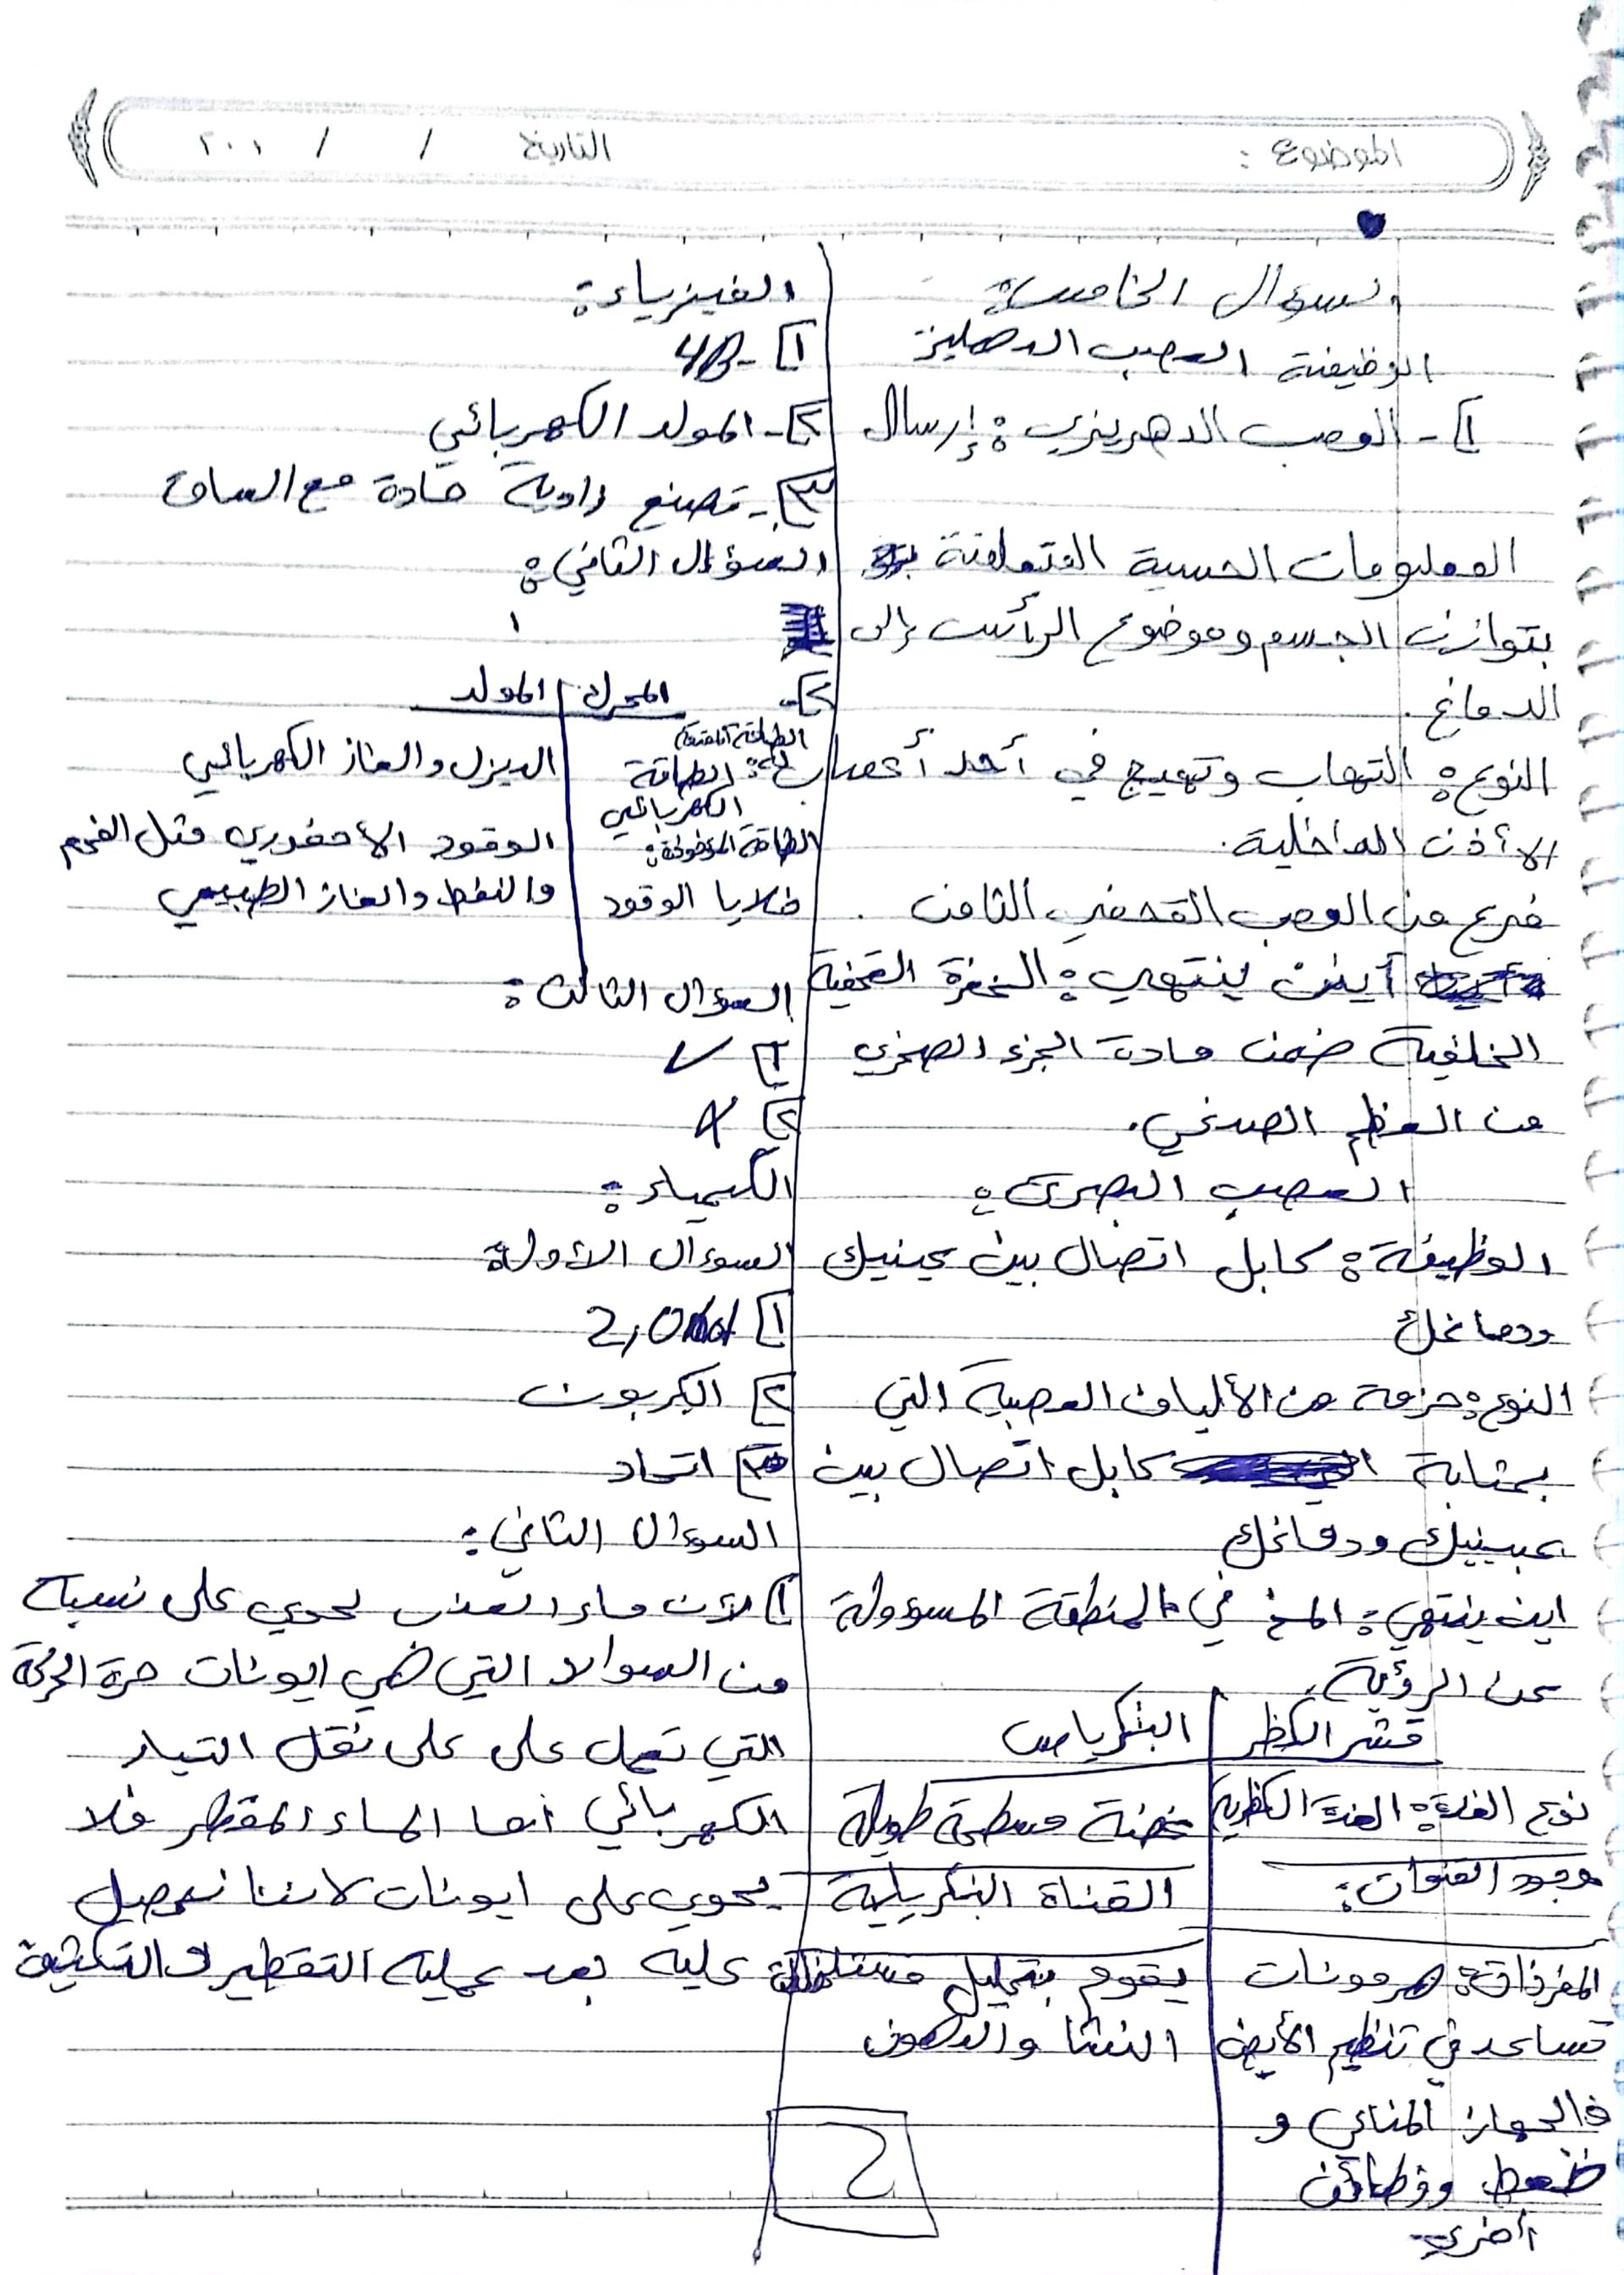 الموضوع :
التاريخ / / ٢٠١
السؤال الخامس:
الوظيفة العصب الدهليز
١- العصب الدهليزي: إرسال
المعلومات الحسية المتعلقة
بتوازن الجسم وموضوع الرأس إلى
الدماغ.
النوع: التهاب وتهيج في أحد أعصاب
الأذن الداخلية.
فرع من العصب القحفي الثامن.
أين ينتهي: الحفرة القحفية
الخلفية ضمن مادة الجزء الصخري
من العظم الصدغي.
العصب البصري:
الوظيفة: كابل اتصال بين عينيك
ودماغك
النوع: حزمة من الألياف العصبية التي
بمثابة كابل اتصال بين
عينيك ودماغك
اين ينتهي: المخ في المنطقة المسؤولة
عن الرؤية.
قشر الكظر | البنكرياس
نوع الغدة: الغدة الكظرية | مسطحة طويلة
وجود القنوات: | القناة البنكرياية
المفرزات: هرمونات | يقوم بتحليل
تساعد في تنظيم الأيض | النشا والدهون
والجهاز المناعي و
ضغط ووظائف
أخرى
الفيزياء:
١- 4B
٢- المولد الكهربائي
٣- تصنع زاوية حادة مع الساق
السؤال الثاني:
١
٢-
المحرك | المولد
الطاقة | الديزل والغاز الكهربائي
الكهربائي
الوقود الأحفوري مثل الفحم
خلايا الوقود | والنفط والغاز الطبيعي
السؤال الثالث:
١ ✓
٢ X
الكيمياء:
السؤال الأول:
١
٢ الكربون
٣ اتحاد
السؤال الثاني:
١ لأن ماء العذب يحوي على نسبة
من السوالا التي هي ايونات حرة الحركة
التي تعمل على على نقل التيار
الكهربائي أما الماء المقطر فلا
يحوي على ايونات لاننا نحصل
عليه بعد عملية التقطير و التكثيف
2